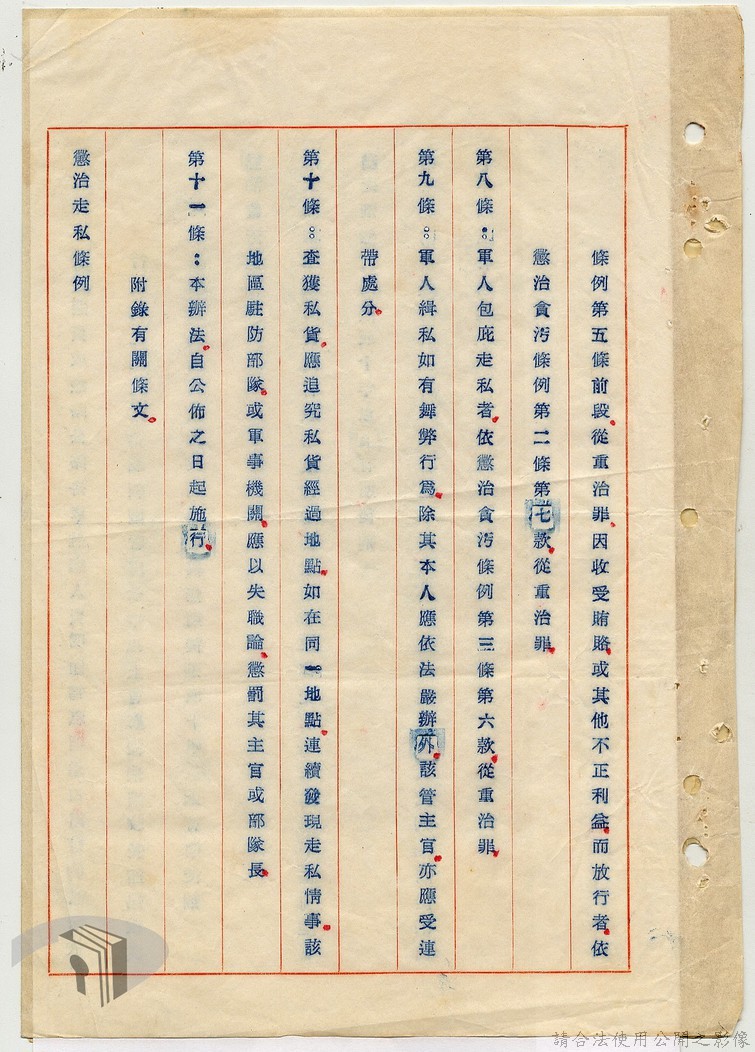 條例第五條前段從重治罪因收受賄賂或其他不正利益而放行者依
懲治貪污條例第二條第七款從重治罪
第八條：軍人包庇走私者依懲治貪污條例第三條第六款從重治罪
第九條：軍人緝私如有舞弊行為除其本人應依法嚴辦外該管主官亦應受連
帶處分
第十條：查獲私貨應追究私貨經過地點如在同一地點連續發現走私情事該
地區駐防部隊或軍事機關應以失職論懲罰其主官或部隊長
第十一條：本辦法自公佈之日起施行
附錄有關條文
懲治走私條例
請合法使用公開之影像